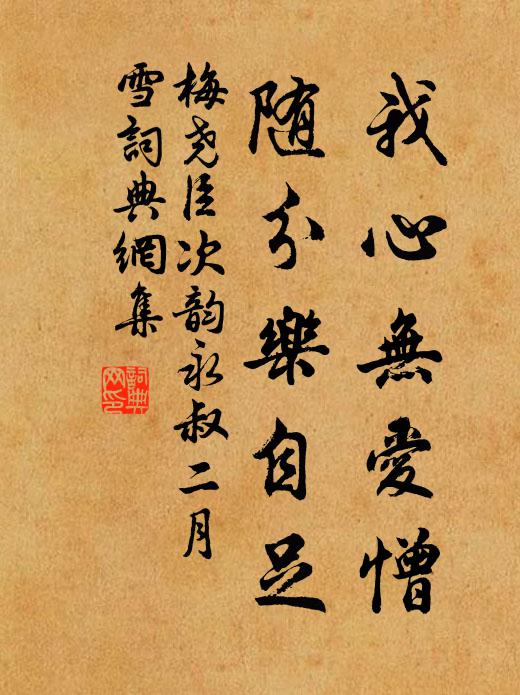 我心無愛憎
随分樂自足
梅尧臣次韵永叔二月
雪詞典網集
詞典網印